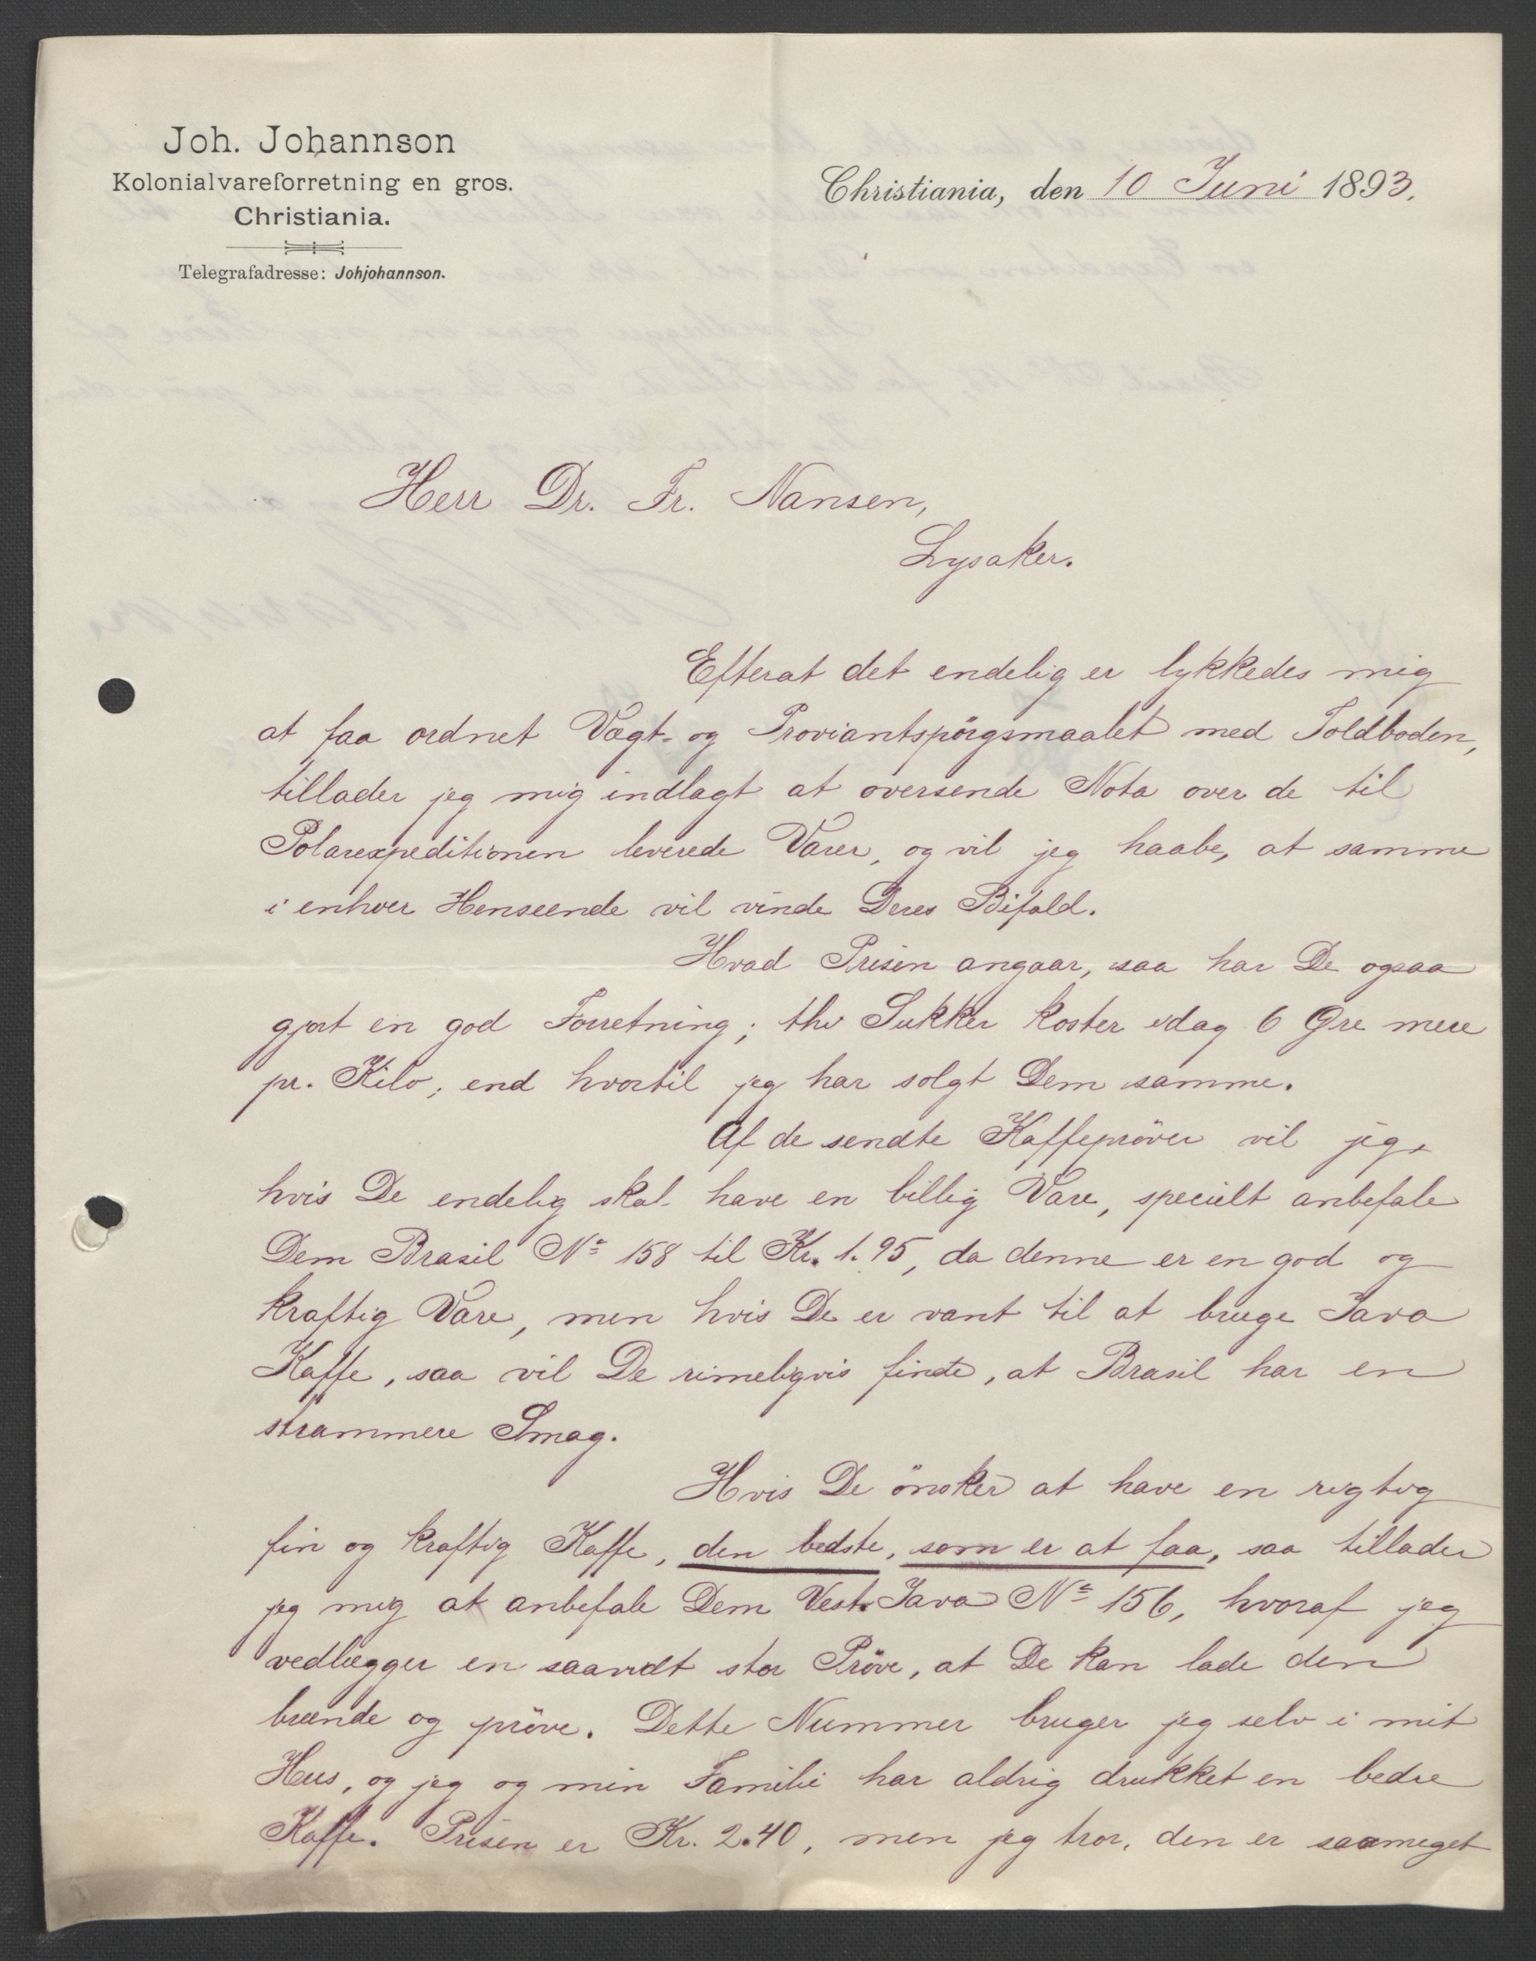 Joh. Johannson
Kolonialvareforretning en gros.
Christiania.
Telegrafadresse: Johjohannson.
Christiania, den 10 Juni 1893.
Herr Dr. Fr. Nansen,
Lysaker.
Efterat det endelig er lykkedes mig
at faa ordnet Vægt- og Proviantspörgsmaalet med Toldboden,
tillader jeg mig indlagt at oversende Nota over de til
Polarexpeditionen leverede Varer, og vil jeg haabe, at samme
i enhver Henseende vil vinde Deres Bifald.
Hvad Prisen angaar, saa har De ogsaa
gjort en god Forretning; thi Sukker koster idag 6 Øre mere
pr. Kilo, end hvortil jeg har solgt Dem samme.
Af de sendte Kaffepröver vil jeg,
hvis De endelig skal have en billig Vare, specielt anbefale
Dem Brasil No 158 til Kr. 1.95, da denne er en god og
kraftig Vare, men hvis De er vant til at bruge Java
Kaffe, saa vil De rimeligvis finde, at Brasil har en
strammere Smag.
Hvis De önsker at have en rigtig
fin og kraftig Kaffe, den bedste, som er at faa, saa tillader
jeg mig at anbefale Dem Vest. Java No 156, hvoraf jeg
vedlægger en saavidt stor Pröve, at De kan lade den
brænde og pröve. Dette Nummer bruger jeg selv i mit
Hus, og jeg og min Familie har aldrig drukket en bedre
Kaffe. Prisen er Kr. 2.40, men jeg tror, den er saameget